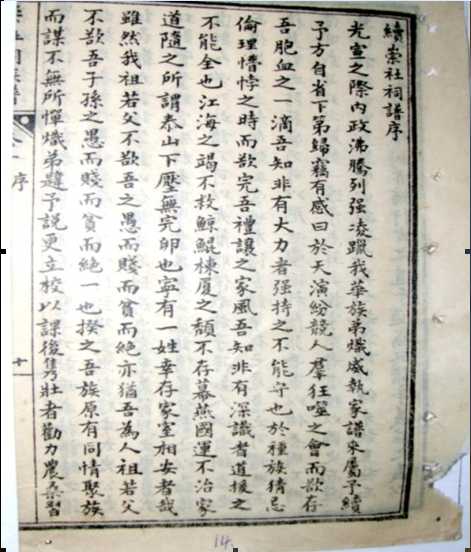 續崇社祠譜序
光宣之際內政沸騰列强凌躐我華族弟熾感執家譜來屬予續
予方自省下第歸竊有感曰於天演紛競人羣狂噬之會而欲存
吾胞血之一滴吾知非有大力者强持之不能守也於種族猜忌
倫理懵悖之時而欲完吾禮讓之家風吾知非有深識者道援之
不能全也江海之竭不救鯨鯤棟厦之頽不存幕燕國運不治家
道隨之所謂泰山下壓無完卵也寧有一姓幸存家室相安者哉
雖然我祖若父不欲吾之愚而賤而貧而絶亦猶吾為人祖若父
不欲吾子孫之愚而賤而貧而絶一也揆之吾族原有同情聚族
而謀不無所憚熾弟趨予說更立校以課後雋壯者勸力農桑習
序
十
14